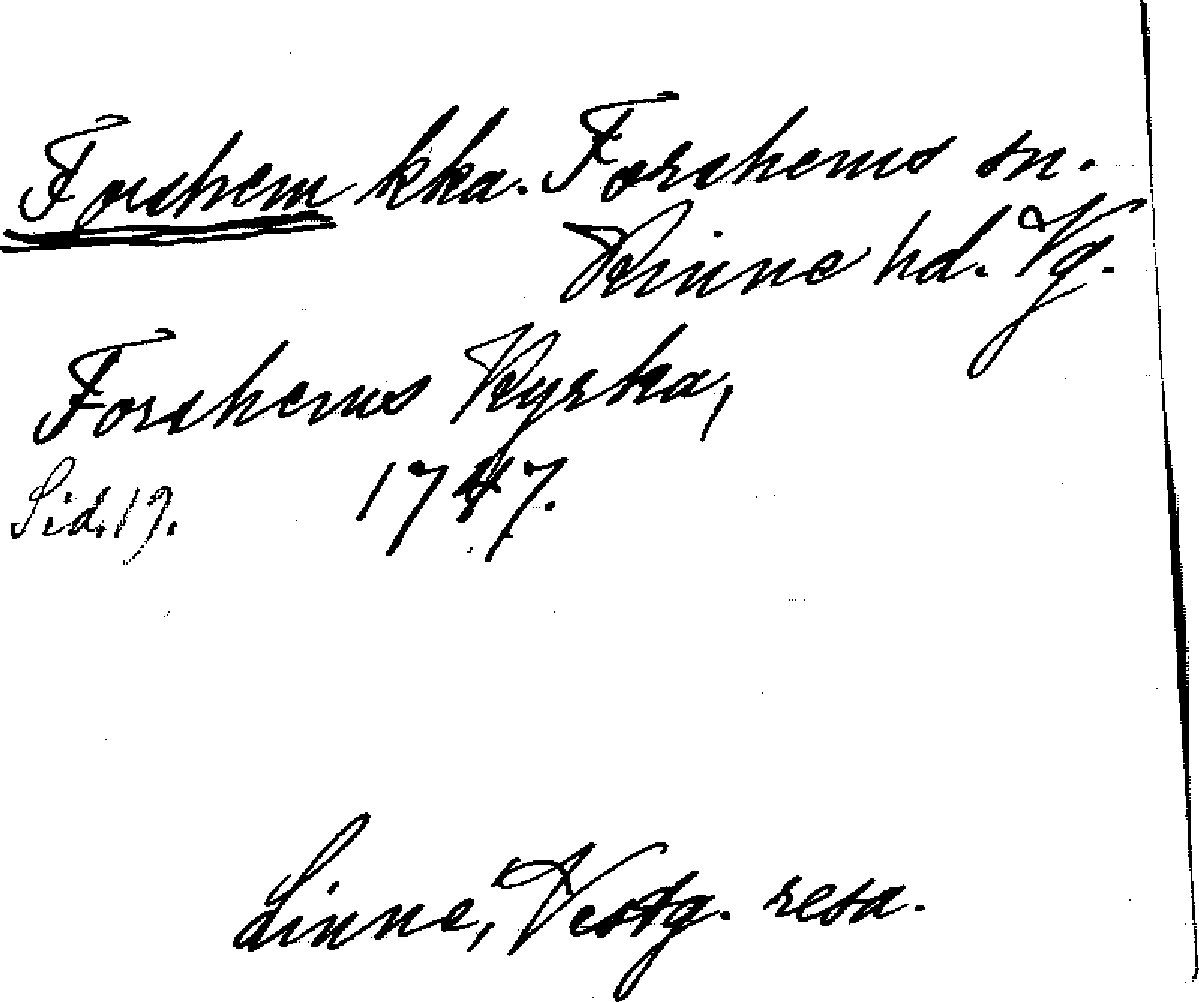 Forshem kka. Forshems sn.
Kinne hd. Vg.
Forshems Kyrka,
Sid. 19. 1747.
Linne, Vestg. resa.